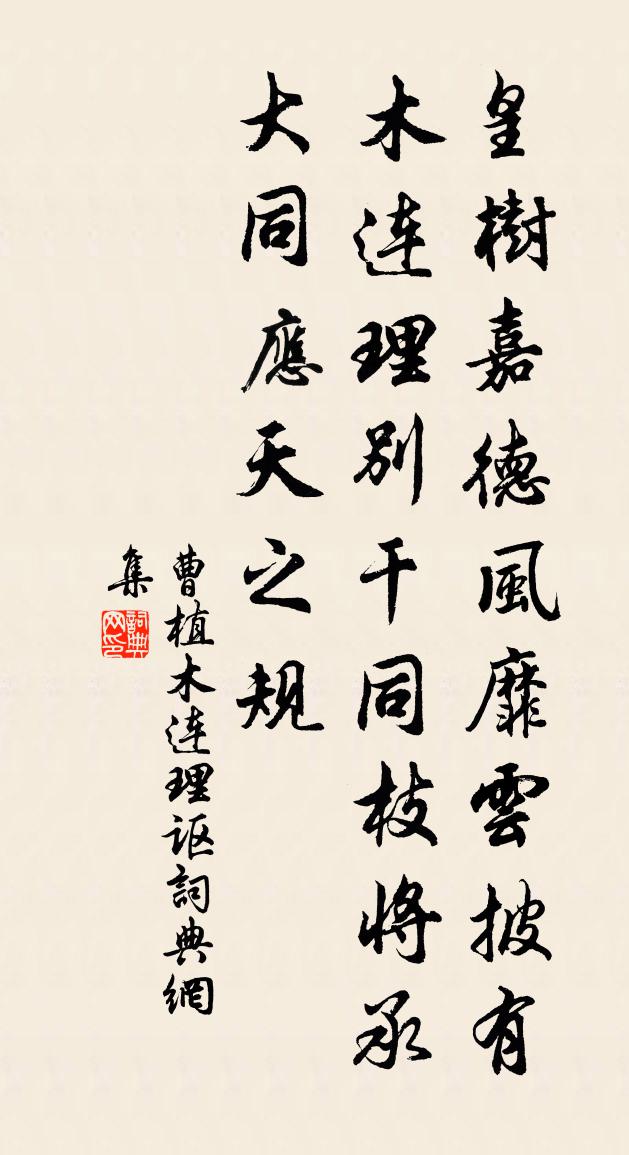 皇樹嘉德風靡雲披有
木連理別干同枝將承
大同應天之規
曹植木連理謳詞典網
集
詞典
网印